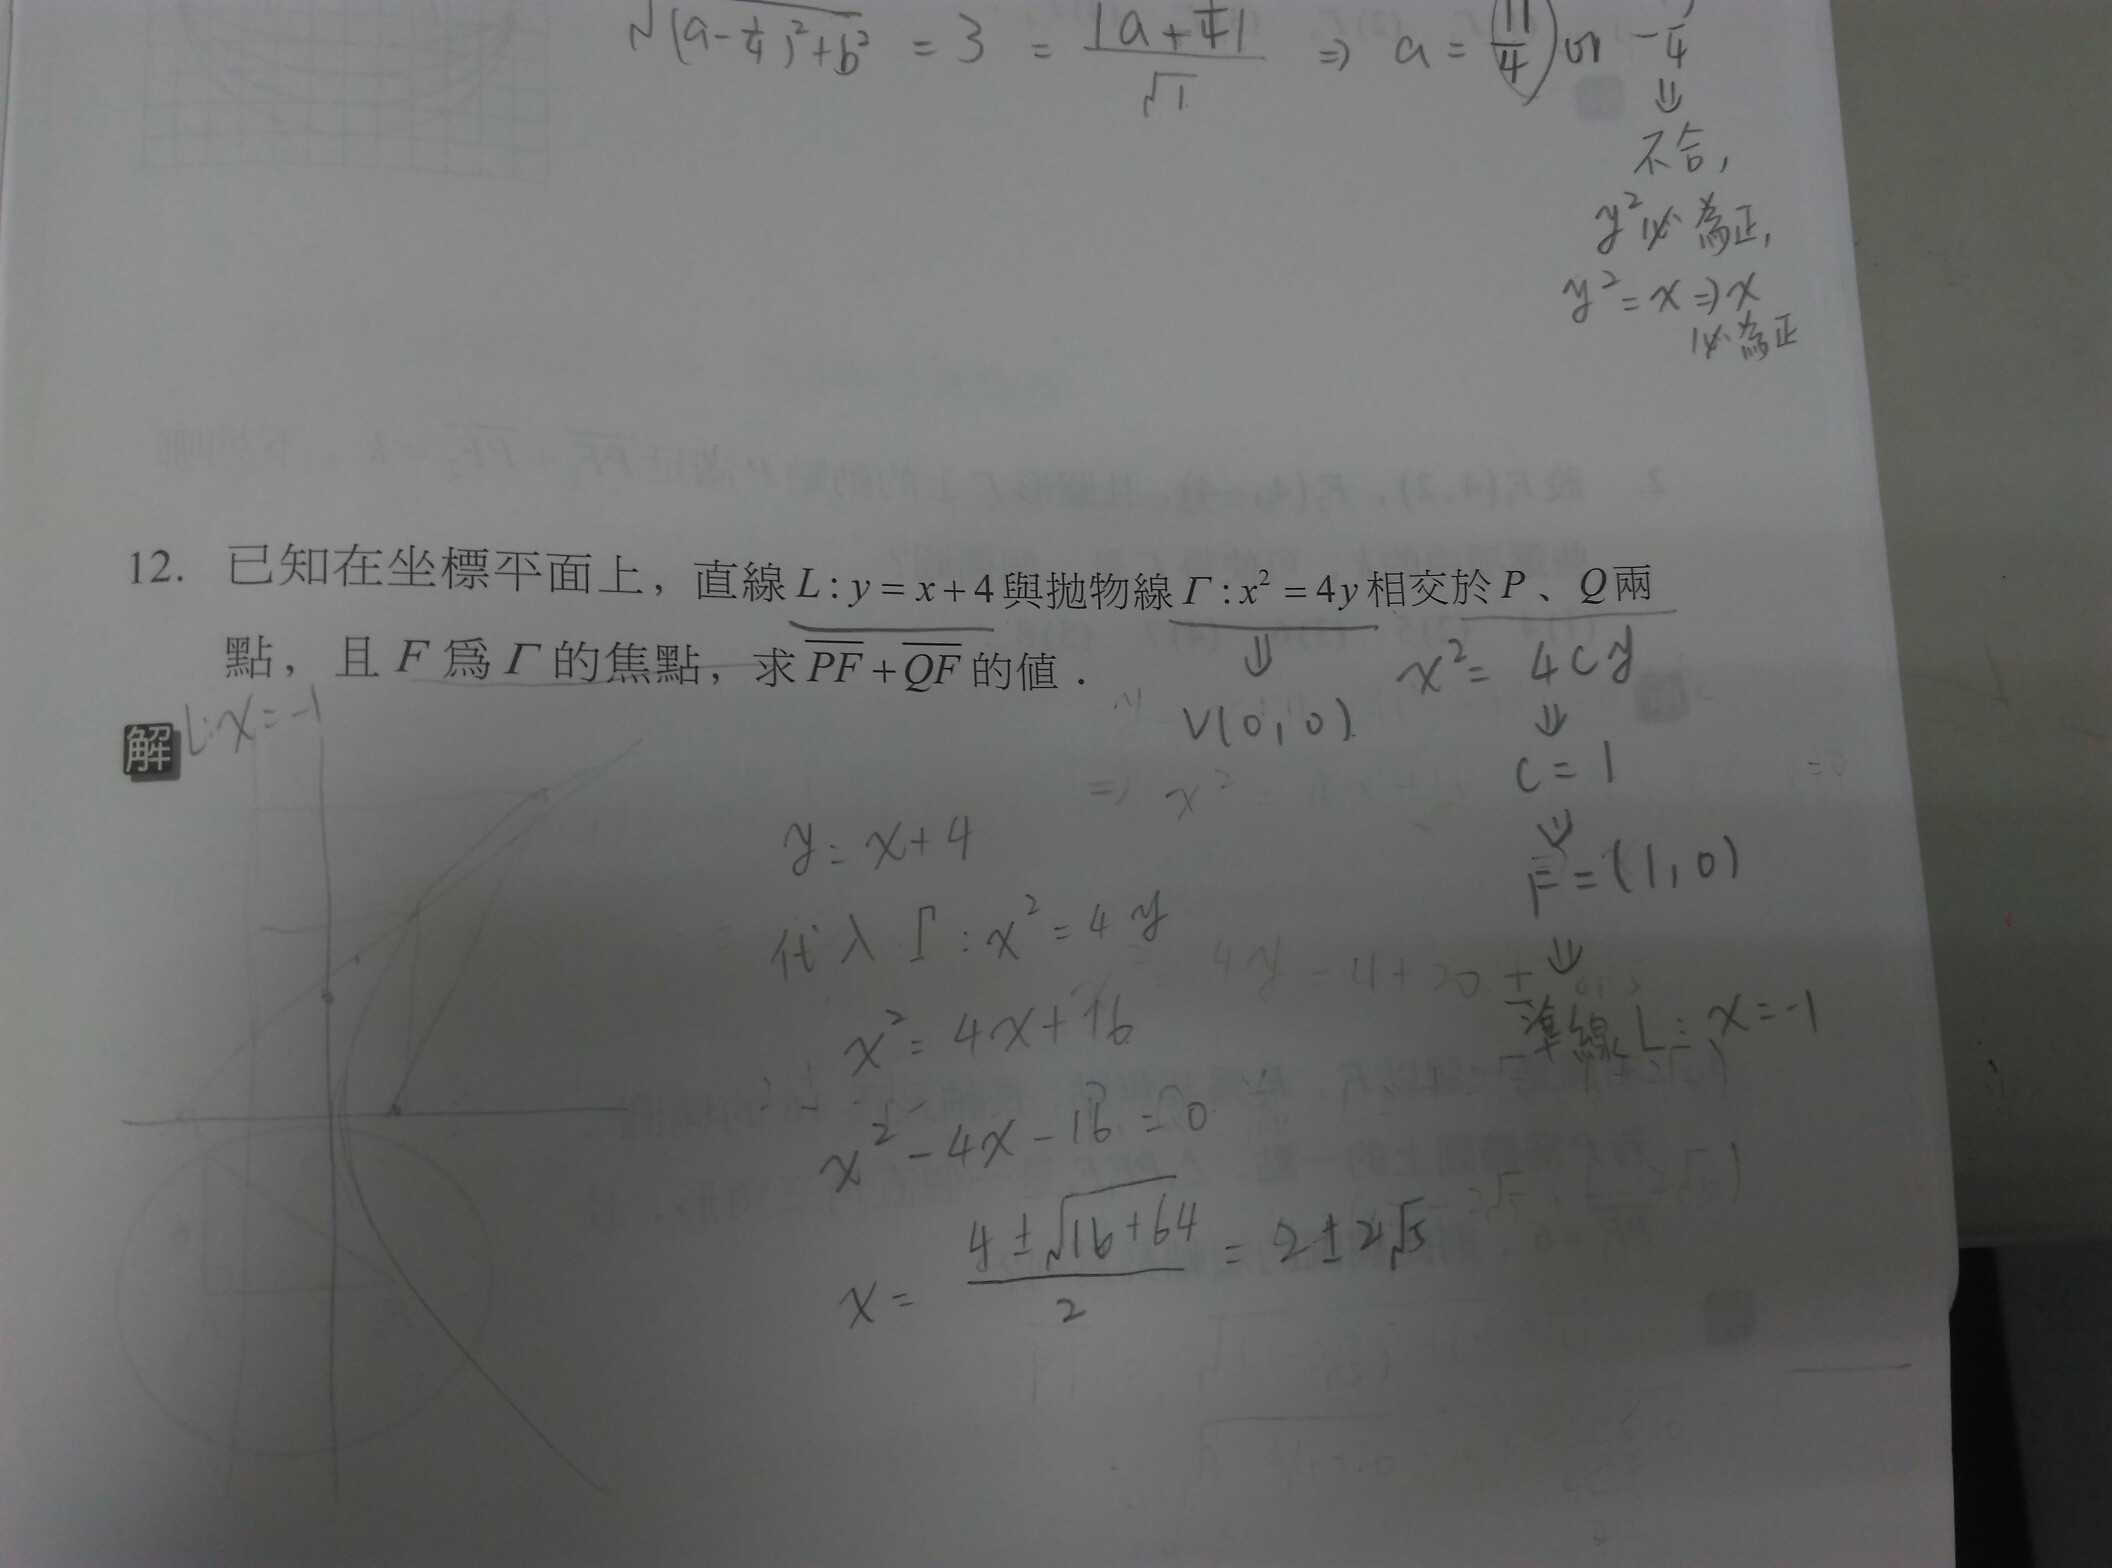 √(a-1/4)²+b² = 3 = |a+1/4|/√1 ⇒ a = 11/4 or -
⇓
不合,
y²必為正,
y²=x⇒x
必為正
12. 已知在坐標平面上，直線L:y=x+4與拋物線Γ:x²=4y相交於P、Q兩
點，且F為Γ的焦點，求PF+QF的值．
⇓
V(0,0)
x²=4cy
⇓
c=1
⇓
F=(1,0)
⇓
準線L:x=-1
解
L:x=-1
y=x+4
代入Γ:x²=4y
x²=4x+16
x²-4x-16=0
x=(4±√16+64)/2=2±2√5